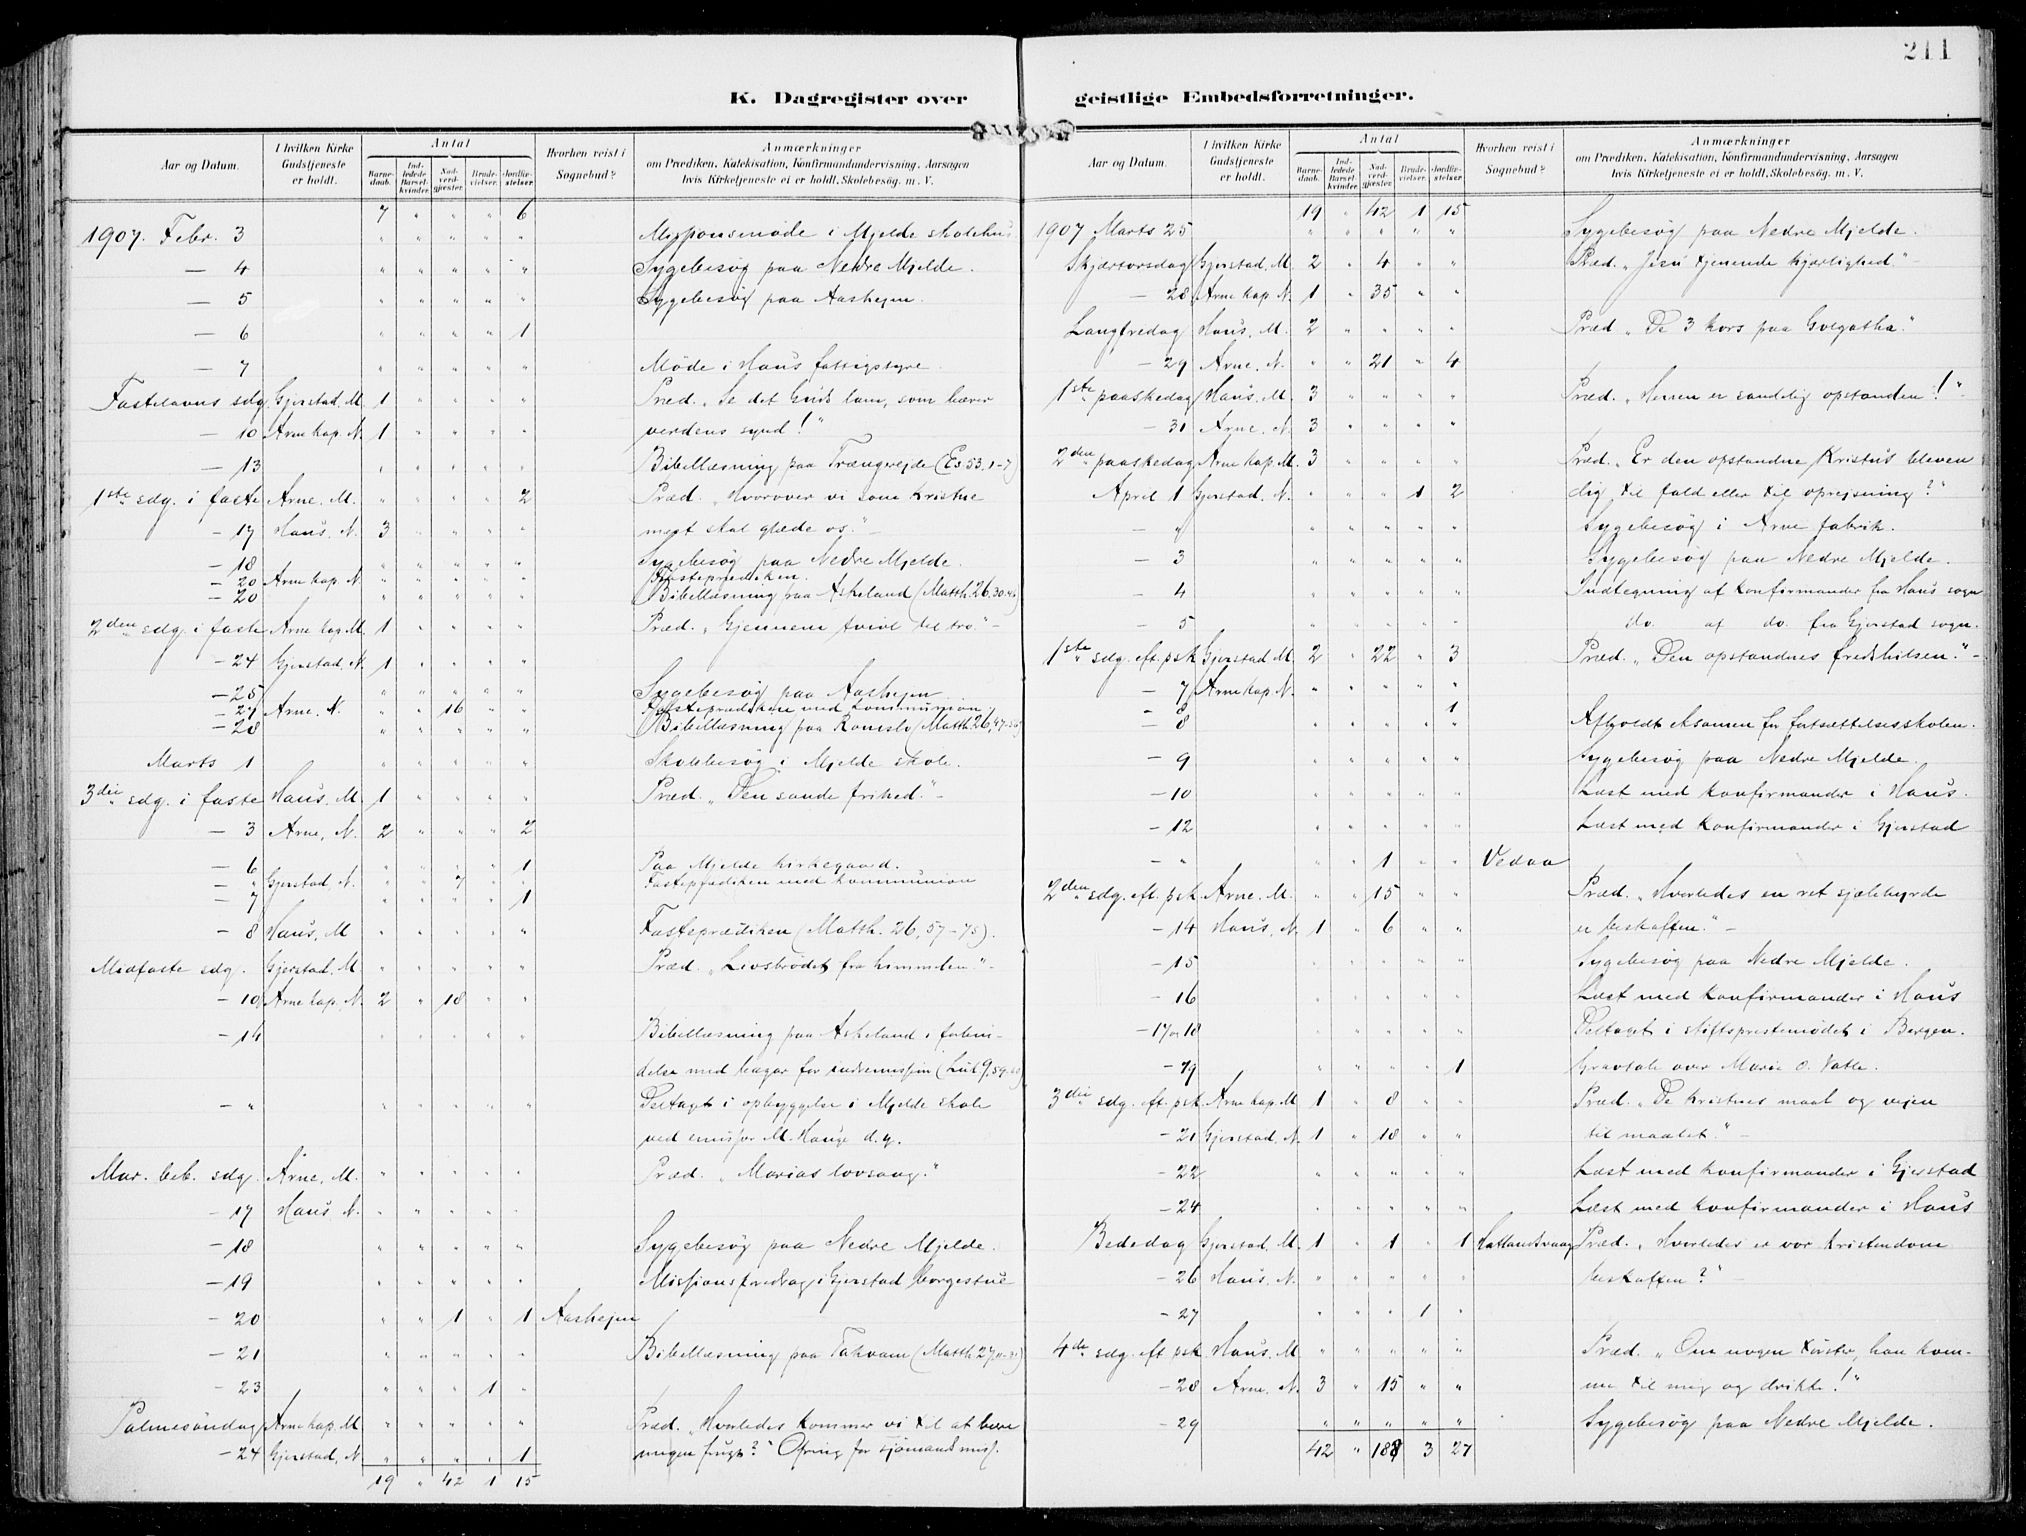 211
K. Dagregister over
Aar og Datum. I hvilken Kirke Gudstjeneste er holdt. Antal Barnedaab. Indledede Barselkvinder. Nadverdgjester. Brudevielser. Jordfæstelser. Hvorhen reist i Sognebud? Anmærkninger om Prædiken, Katekisation, Konfirmandundervisning, Aarsagen hvis Kirketjeneste ei er holdt, Skolebesøg. m. V.
7 " " " 6
1907. Febr. 3 " " " " " Missionsmøde i Mjelde skolehus
— 4 " " " " " Sygebesøg paa Nedre Mjelde.
— 5 " " " " " Sygebesøg paa Aashejen.
— 6 " " " " 1
— 7 " " " " " Møde i Haus fattigstyre.
Fastelavns sdg. Gjerstad, M. 1 " " " " Præd. „Se det Guds lam, som bærer
— 10 Arne kap. N. 1 " " " " verdens synd!"
— 13 " " " " " Bibellæsning paa Trængereide (Es. 53, 1-7)
1ste sdg. i faste Arne, M. " " " " 2 Præd. „Hvorover vi som kristne
— 17 Haus, N. 3 " " " " megt skal glæde os." —
— 18 " " " " " Sygebesøg paa Nedre Mjelde.
— 20 Arne kap. N. " " " " " Fasteprædiken.
— 20 " " " " " Bibellæsning paa Askeland (Matth. 26, 30-46)
2den sdg. i faste Arne kap. M. 1 " " " " Præd. „Gjennem tvivl til tro." —
— 24 Gjerstad, N. 1 " " " "
— 25 " " " " " Sygebesøg paa Aashejen
— 27 Arne. N. " " 16 " " Fasteprædiken med kommunion.
— 28 " " " " " Bibellæsning paa Romslo (Matth 26, 47-56)
Marts 1 " " " " " Skolebesøg i Mjelde skole.
3die sdg. i faste Haus, M. 1 " " " " Præd. „Den sande frihed." —
— 3 Arne, N. 2 " " " 2
— 6 " " " " 1 Paa Mjelde kirkegaard.
— " Gjerstad, N. " " 7 " " Fasteprædiken med kommunion
— 7 " " " " 1
— 8 Haus, M " " " " " Fasteprædiken (Matth. 26, 57-75).
Midfaste sdg. Gjerstad, M " " " " " Præd. „Livsbrødet fra himmelen." —
— 10 Arne kap. N. 2 " 18 " "
— 14 " " " " " Bibellæsning paa Askeland i forbin-
delse med bazar for indremission (Luk 9, 57-62)
— " " " " " " Deltaget i opbyggelse i Mjelde skole
ved emissær M. Hauge d.y.
Mar. beb. sdg. Arne, M. " " " " " Præd. „Marias lovsang."
— 17 Haus, N. " " " " "
— 18 " " " " " Sygebesøg paa Nedre Mjelde.
— 19 " " " " " Missionsforedrag i Gjerstad borgestue
— 20 " " 1 " 1 Aashejen
— 21 " " " " " Bibellæsning paa Takvam (Matth 27, 11-31)
— 23 " " " 1 "
Palmesøndag Arne kap. M " " " " " Præd. „Hvorledes kommer vi til at bære
— 24 Gjerstad, N " " " " 1 megen frugt?" Ofring for sjømandsmis.
19 " 42 1 15
geistlige Embedsforretninger.
Aar og Datum. I hvilken Kirke Gudstjeneste er holdt. Antal Barnedaab. Indledede Barselkvinder. Nadverdgjester. Brudevielser. Jordfæstelser. Hvorhen reist i Sognebud? Anmærkninger om Prædiken, Katekisation, Konfirmandundervisning, Aarsagen hvis Kirketjeneste ei er holdt, Skolebesøg. m. V.
19 " 42 1 15
1907 Marts 25 " " " " " Sygebesøg paa Nedre Mjelde.
Skjærtorsdag Gjerstad, M. 2 " 4 " " Præd. „Jesu tjenende kjærlighed." —
— 28 Arne kap. N. 1 " 35 " "
Langfredag Haus, M. 2 " " " " Præd „De 3 kors paa Golgatha."
— 29 Arne. N. " " 21 " 4
1ste paaskedag Haus, M. 3 " " " " Præd. „Herren er sandelig opstanden!"
— 31 Arne. N. 3 " " " "
2den paaskedag Arne kap. M. 3 " " " " Præd. „Er den opstandne Kristus bleven
April 1 Gjerstad, N. " " " 1 2 dig til fald eller til oprejsning?"
— " " " " " " Sygebesøg i Arne fabrik.
— 3 " " " " " Sygebesøg paa Nedre Mjelde.
— 4 " " " " " Indtegning af konfirmander fra Haus sogn
— 5 " " " " " do. af do. fra Gjerstad sogn.
1ste sdg. eft. psk. Gjerstad, M. 2 " 22 " 3 Præd. „Den opstandnes fredshilsen." —
— 7 Arne kap. N. " " " " "
— 8 " " " " 1
— 8 " " " " " Afholdt eksamen for fortsættelsesskolen.
— 9 " " " " " Sygebesøg paa Nedre Mjelde.
— 10 " " " " " Læst med konfirmander i Haus.
— 12 " " " " " Læst med konfirmander i Gjerstad
— " " " 1 " " Vedaa
2den sdg. eft. psk. Arne. M. " " 15 " " Præd. „Hvorledes en ret sjælehyrde
— 14 Haus, N. 1 " 6 " " er beskaffen." —
— 15 " " " " " Sygebesøg paa Nedre Mjelde.
— 16 " " " " " Læst med konfirmander i Haus
— 17 og 18 " " " " " Deltaget i stiftsprestemødet i Bergen.
— 19 " " " " 1 Gravtale over Marie O. Vatle.
3die sdg. eft. psk. Arne kap. M 1 " 8 " " Præd. „De kristnes maal og vejen
— 21 Gjerstad, N. 1 " 18 " " til maalet." —
— 22 " " " " " Læst med konfirmander i Gjerstad
— 24 " " " " " Læst med konfirmander i Haus
Bededag Gjerstad, M. 1 " 1 " 1 Præd. „Hvorledes er vor kristendom
— 26 Haus, N. " " " " " beskaffen?" —
— 27 " " " 1 "
4de sdg. eft. psk. Haus, M " " " " " Præd. „Om nogen tørster, han kom-
— 28 Arne, N. 3 " 15 " " me til mig og drikke!"
— 29 " " " " " Sygebesøg paa Nedre Mjelde.
42 " 187 3 27